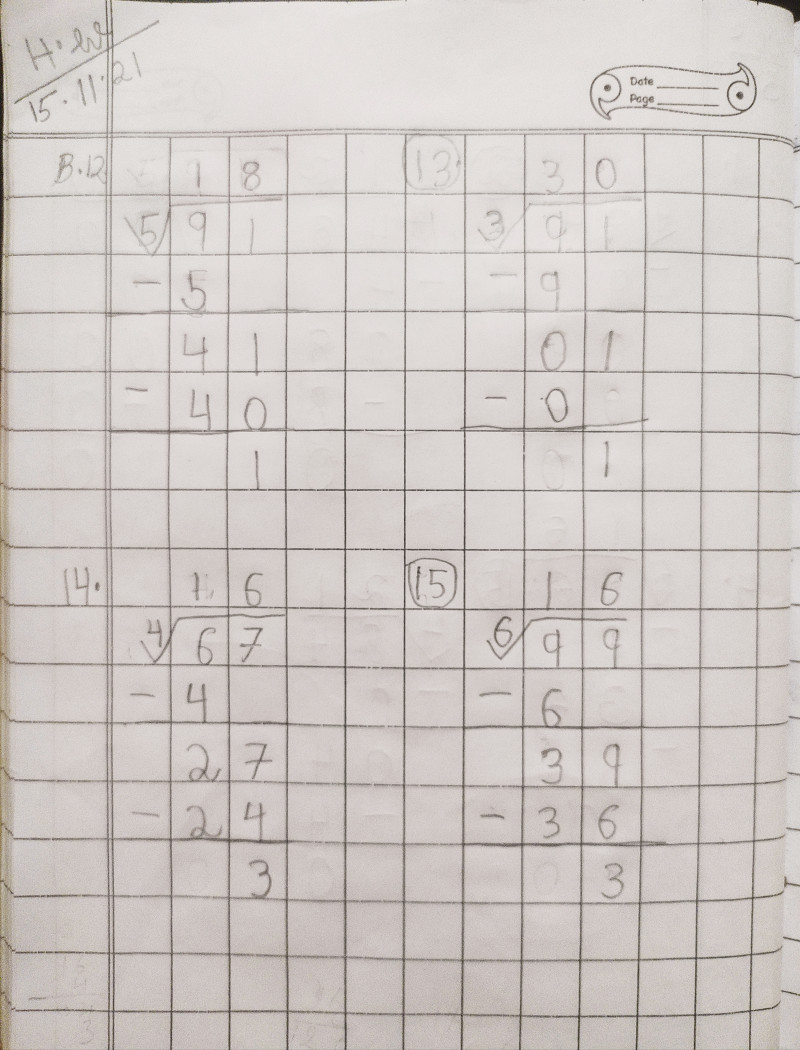 H.W
15.11.21
Date
Page
B.12 18
5√91
- 5
41
- 40
1
13 30
3√91
- 9
01
- 0
1
14. 16
4√67
- 4
27
- 24
3
15 16
6√99
- 6
39
- 36
3